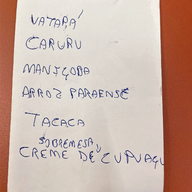 VATAPÁ
CARURU
MANIÇOBA
ARROZ PARAENSE
TACACA
SOBREMESA,
CREME DE CUPUAÇU